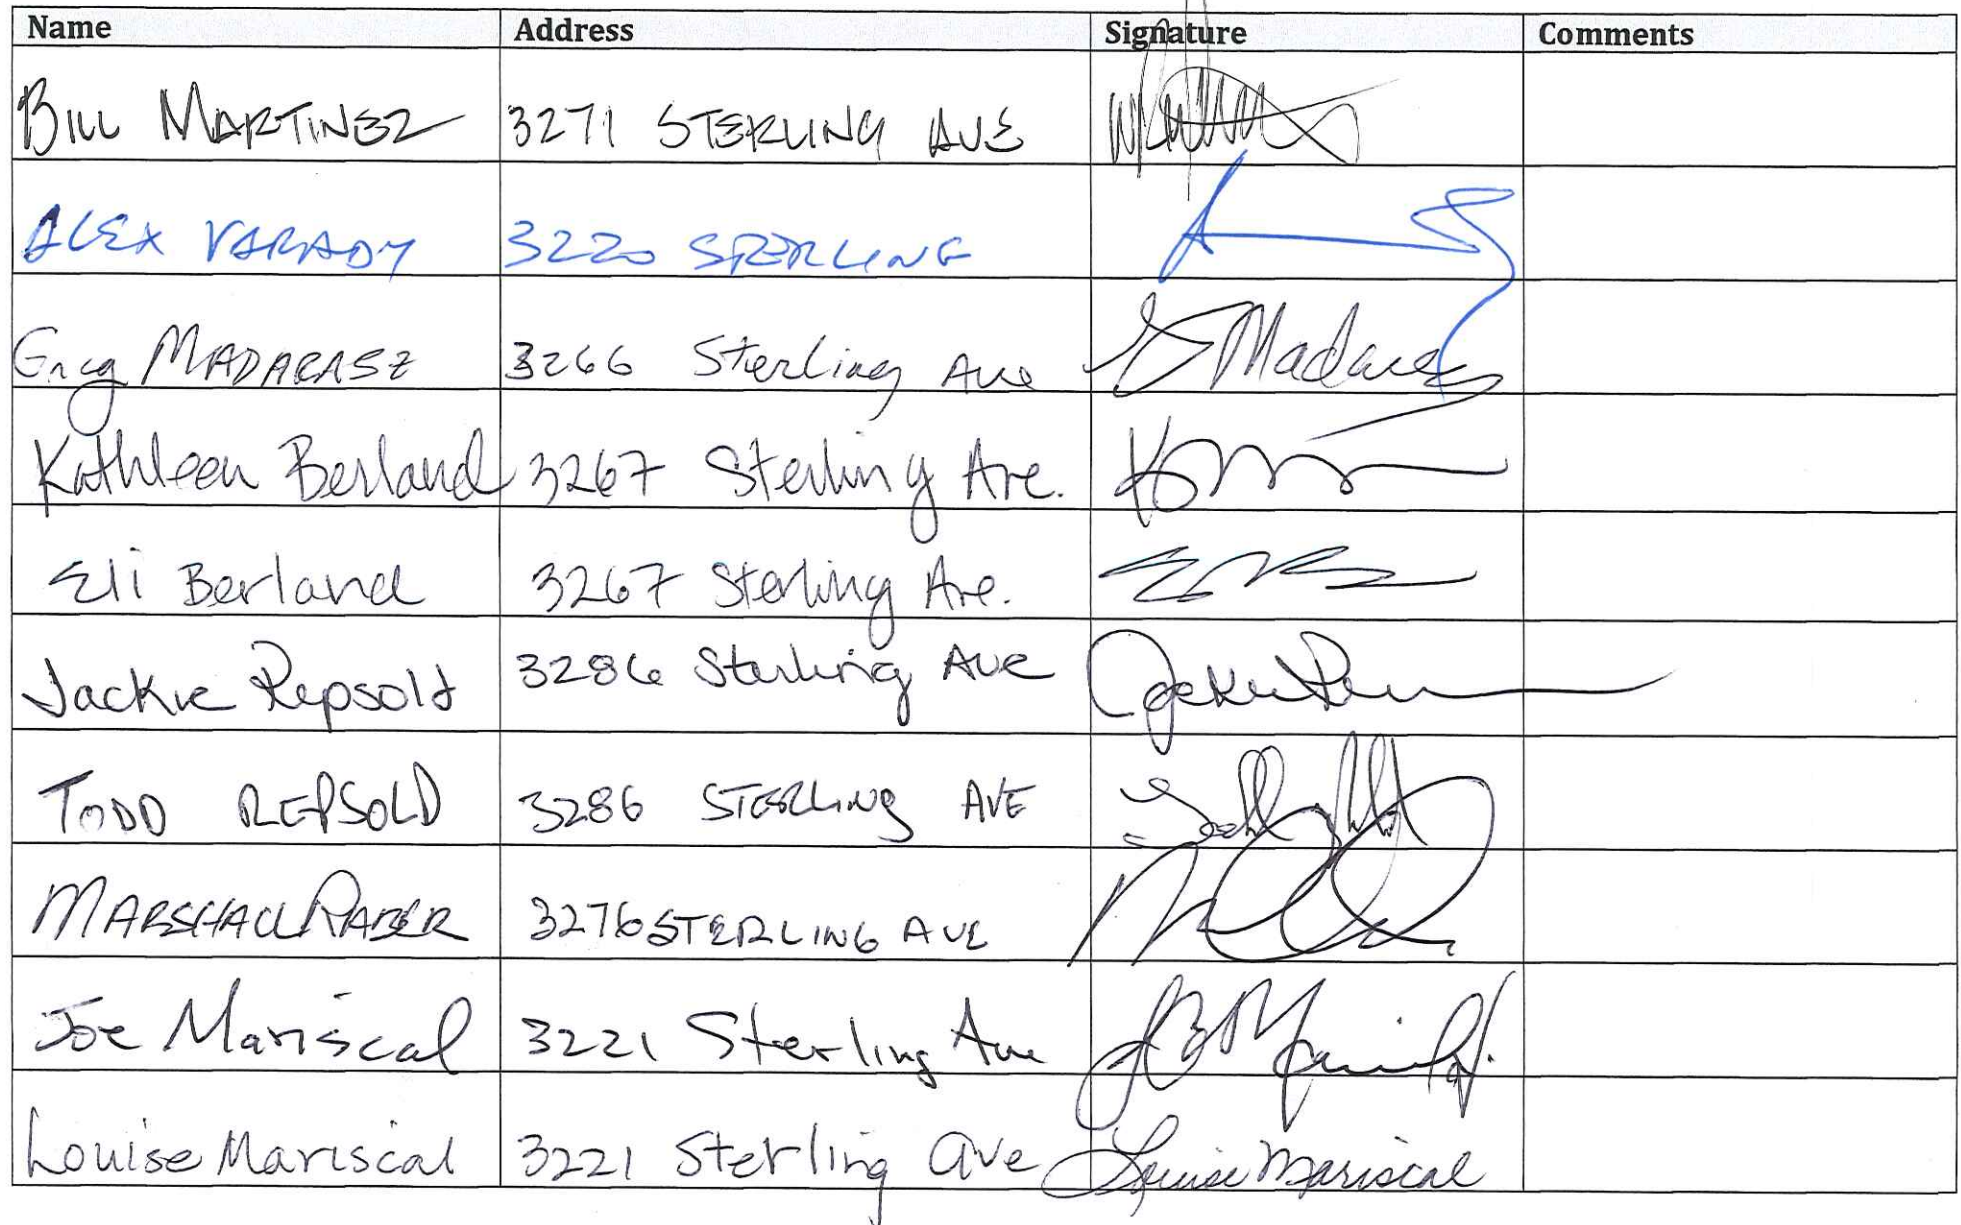 Name Address Signature Comments
BILL MARTINEZ 3271 STERLING AVE
ALEX VARADY 3220 STERLING
Greg MADARASZ 3266 Sterling Ave G Madaras
Kathleen Berland 3267 Sterling Ave.
Eli Berland 3267 Sterling Ave.
Jackie Repsold 3286 Sterling Ave
TODD REPSOLD 3286 STERLING AVE
MARSHALL RABER 3276 STERLING AVE
Joe Mariscal 3221 Sterling Ave
Louise Mariscal 3221 Sterling Ave Louise Mariscal